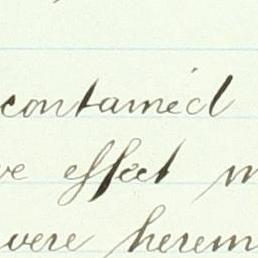 contained
ve effect
were herein